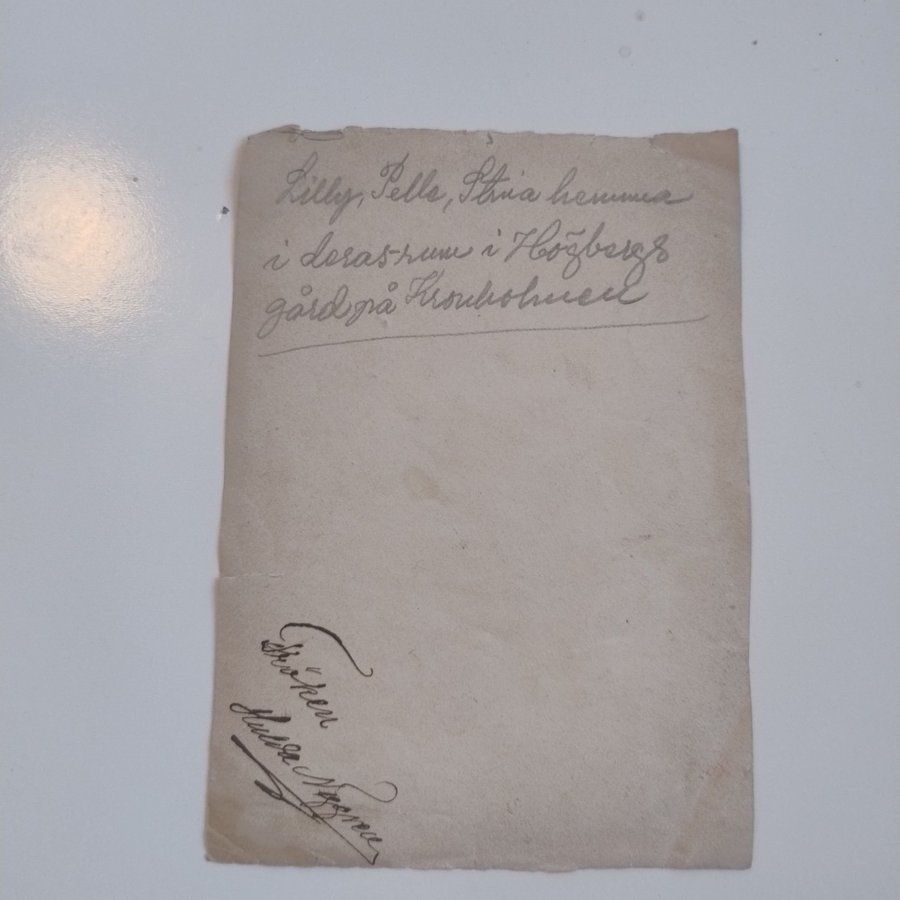 Lilly, Pelle, Stina hemma
i deras rum i Högbergs
gård på Kronholmen
Fröken
Hulda Nygren